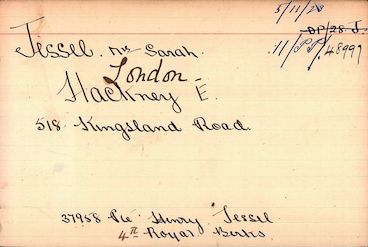 5/11/28
DP/28 J.
Jessel. Mrs Sarah.
11/PP/48997
London
Hackney E.
518 Kingsland Road.
37958 Pte Henry Jessel
4th Royal Berks